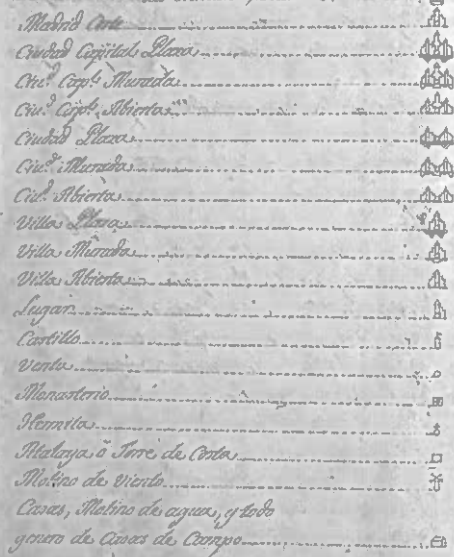 Madrid Corte
Ciudad Capital Plaza
Ciu.d Cap.l Murada
Ciu.d Cap.l Abierta
Ciudad Plaza
Ciu.d Murada
Ciu.d Abierta
Villa Plaza
Villa Murada
Villa Abierta
Lugar
Castillo
Venta
Monasterio
Hermita
Atalaya ô Torre de Costa
Molino de Viento
Casas, Molino de agua, y todo
genero de Casas de Campo